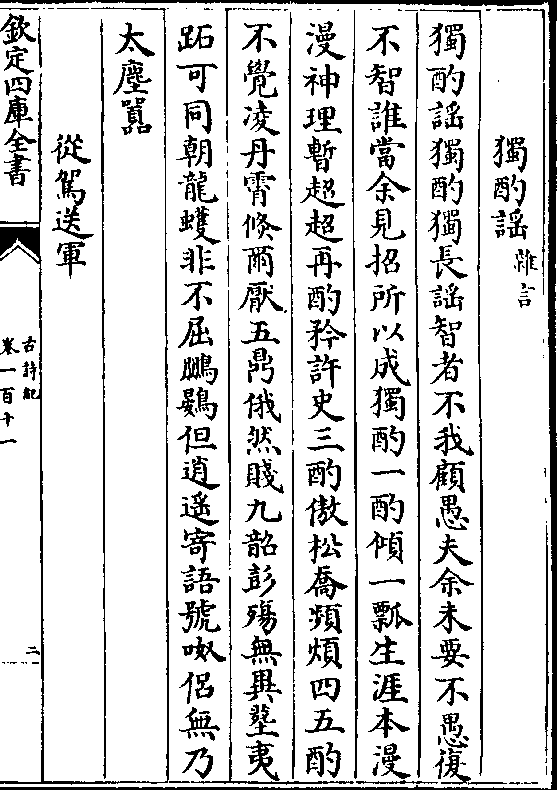 獨酌謡雜言
獨酌謡獨酌獨長謡智者不我顧愚夫余未要不愚復
不智誰當余見招所以成獨酌一酌傾一瓢生涯本漫
漫神理暫超超再酌矜許史三酌傲松喬頻煩四五酌
不覺凌丹霄倐爾厭五鼎俄然賤九韶彭殤無異塟夷
跖可同朝龍蠖非不屈鵬鷃但逍遥寄語號呶侣無乃
太塵囂
從駕送軍
欽定四庫全書
古詩紀
卷一百十一
二